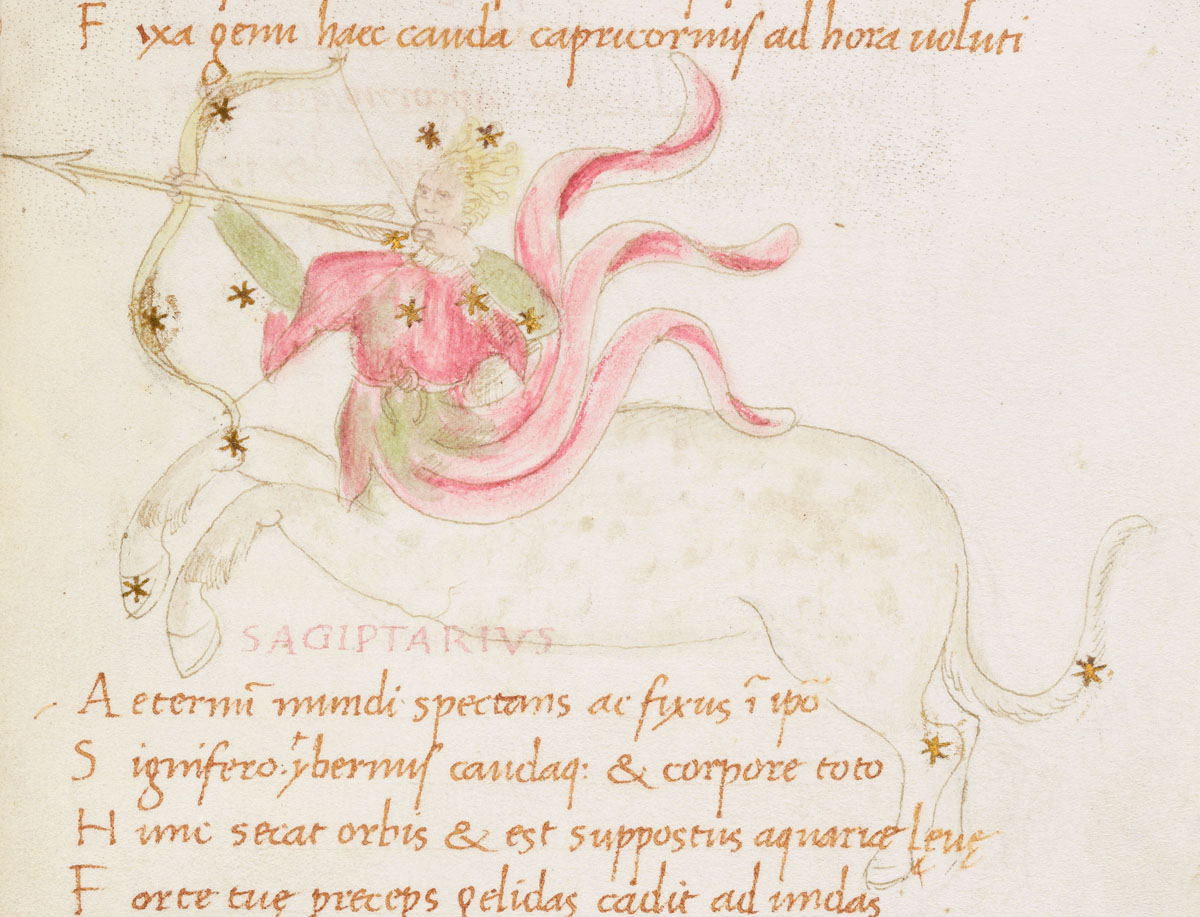 Fixa genu haec cauda capricornus ad hora uoluti
SAGIPTARIVS
Aeternũ mundi spectans ac fixus ĩ ipõ
Signifero. ybernus caudaq: & corpore toto
Hunc secat orbis & est suppostus aquariæ leuę
Forte tuę preceps gelidas cadit ad undas